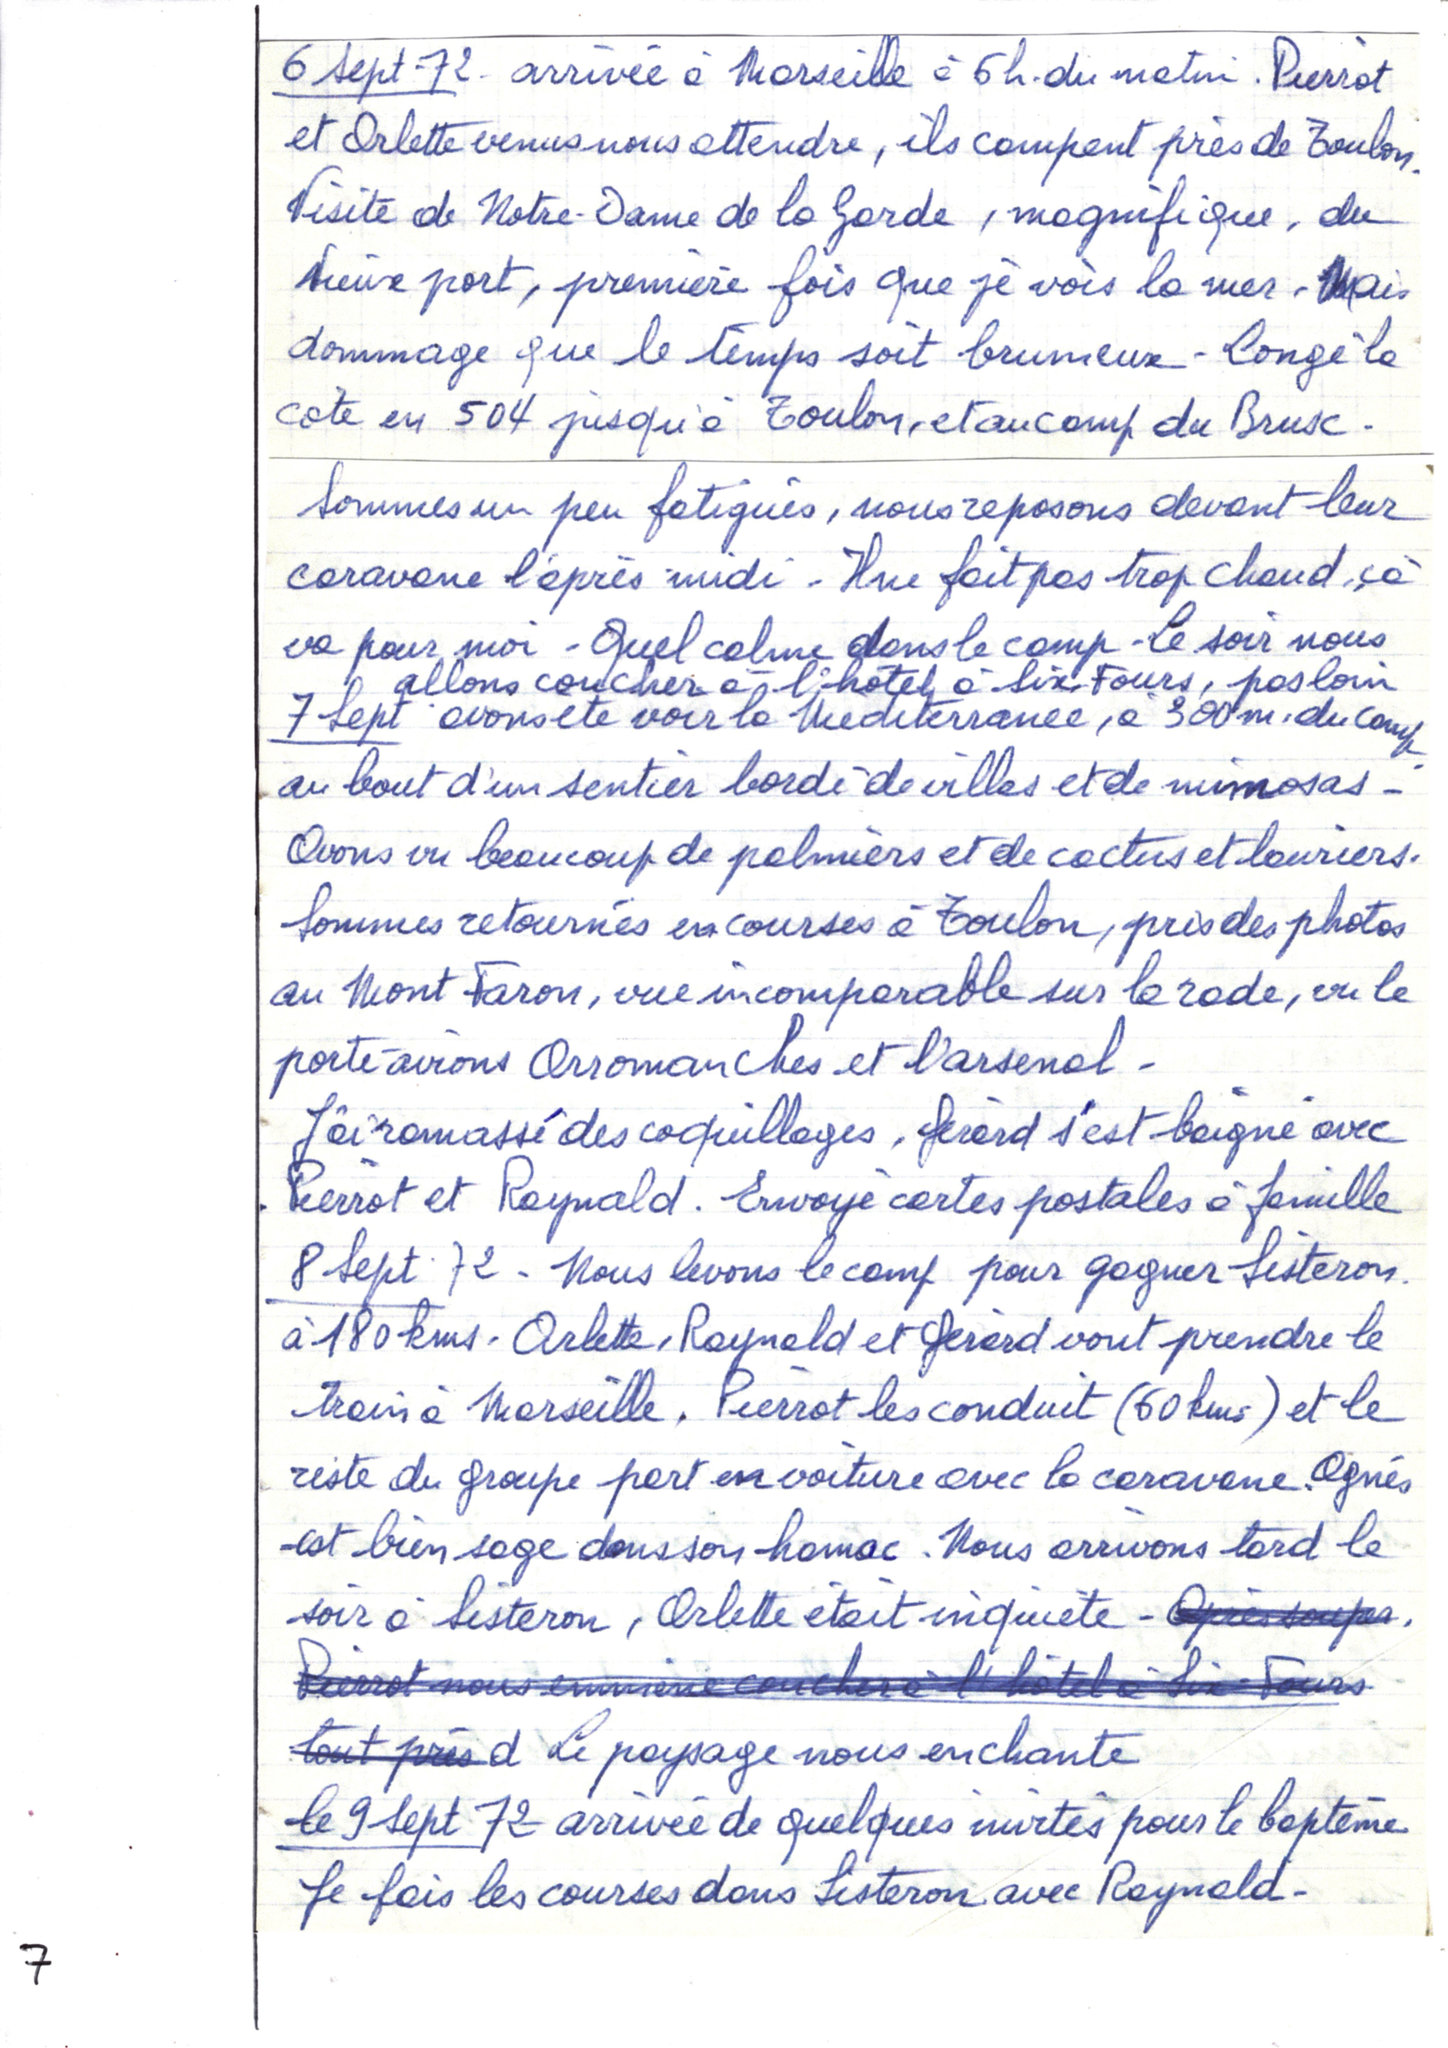 6 Sept-72. arrivée à Marseille à 6h. du matin. Pierrot
et Arlette venus nous attendre, ils campent près de Toulon.
Visite de Notre-Dame de la Garde, magnifique, du
Vieux port, première fois que je vois la mer. Mais
dommage que le temps soit brumeux - Longé la
côte en 504 jusqu'à Toulon, et au camp du Brusc.
Sommes un peu fatigués, nous reposons devant leur
caravane l'après-midi - Il ne fait pas trop chaud, çà
va pour moi - Quel calme dans le camp - Le soir nous
allons coucher à l'hôtel à Six-Fours, pas loin
7 Sept avons été voir la Méditerranée, à 300 m. du camp
au bout d'un sentier bordé de villas et de mimosas -
Avons vu beaucoup de palmiers et de cactus et lauriers.
Sommes retournés en courses à Toulon, pris des photos
au Mont Faron, vue incomparable sur la rade, vu le
porte-avions Arromanches et l'arsenal -
J'ai ramassé des coquillages, Gérard s'est baigné avec
Pierrot et Raynald. Envoyé cartes postales à famille
8 Sept 72 - Nous levons le camp pour gagner Sisteron.
à 180 kms. Arlette, Raynald et Gérard vont prendre le
train à Marseille. Pierrot les conduit (60 kms) et le
reste du groupe part en voiture avec la caravane. Agnés
est bien sage dans son hamac. Nous arrivons tard le
soir à Sisteron, Arlette était inquiète - Après souper.
Pierrot nous emmène coucher à l'hôtel à Six-Fours
tout près d Le paysage nous enchante
le 9 Sept 72 arrivée de quelques invités pour le baptême
Je fais les courses dans Sisteron avec Raynald -
7